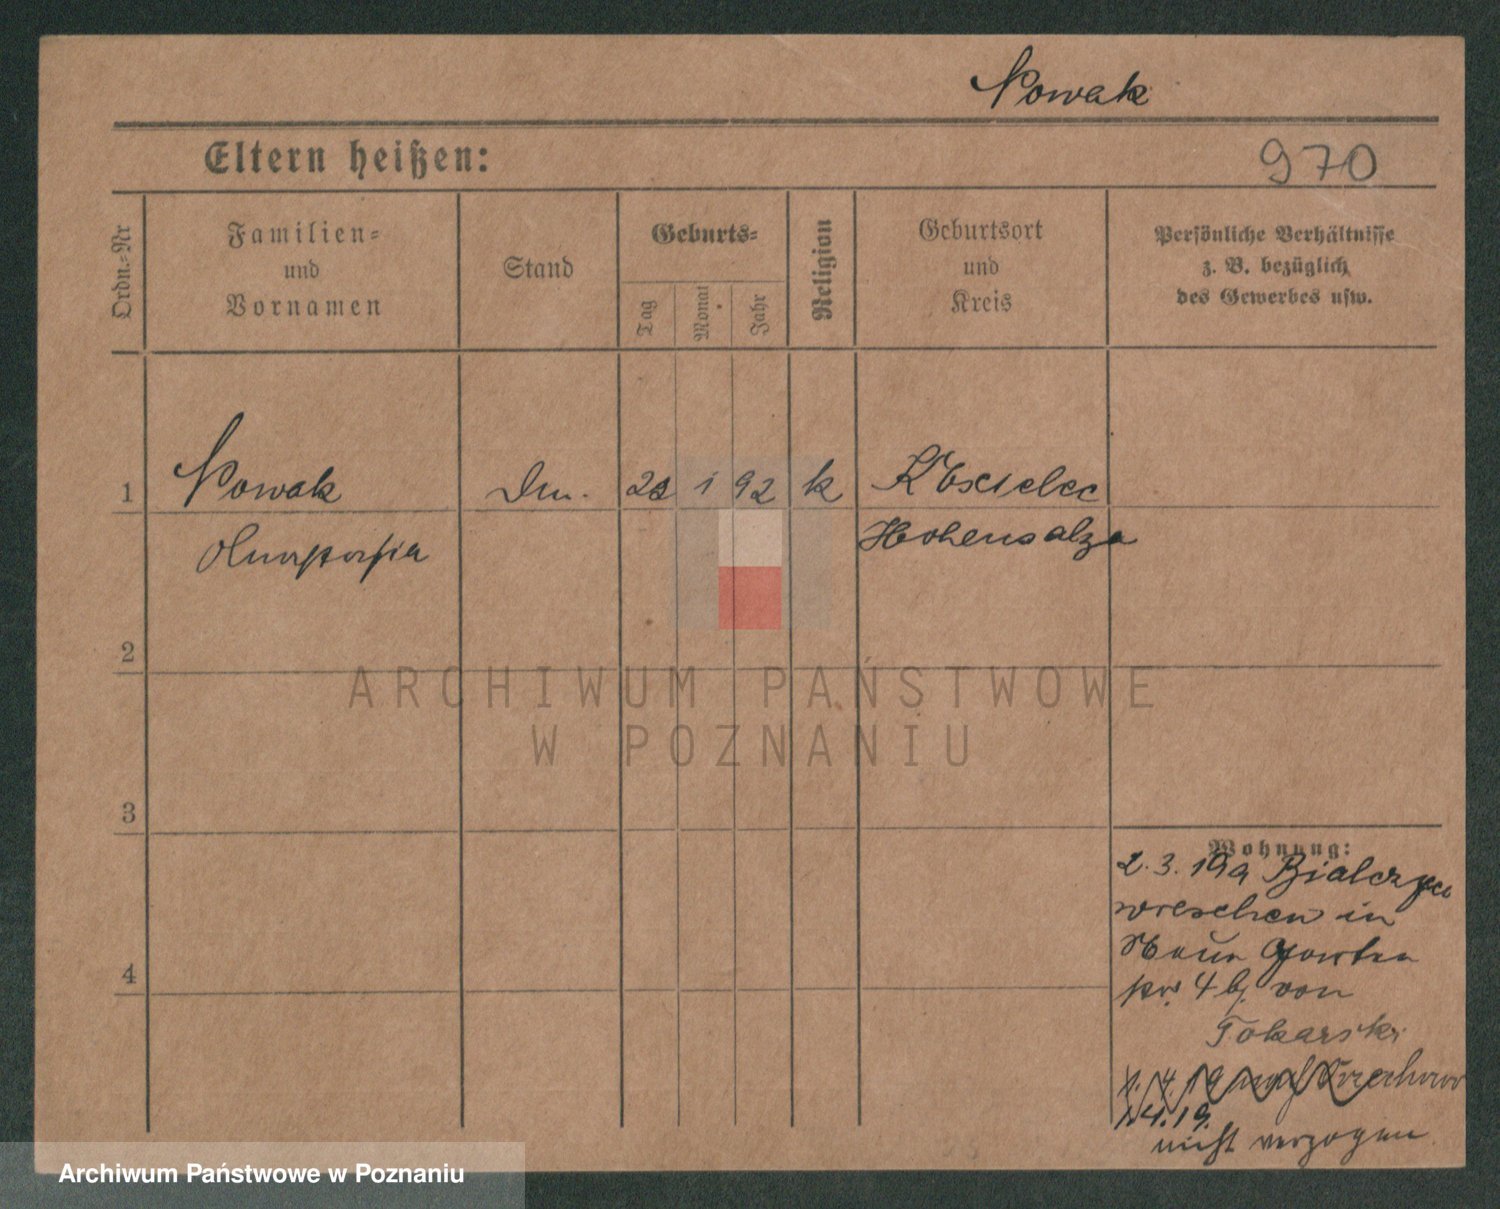 Nowak
Eltern heißen:
970
Ordn.-Nr
Familien-
und
Vornamen
Stand
Geburts-
Tag
Monat
Jahr
Religion
Geburtsort
und
Kreis
Persönliche Verhältnisse
z. B. bezüglich
des Gewerbes usw.
1
Nowak
1 92 k
Anastasia
Hohensalza
2
ARCHIWUM PAŃSTWOWE
W POZNANIU
3
4
Wohnung:
2.3.19
wreschen in
von
Tokarski
1.4.19
1.4.19.
nicht verzogen
Archiwum Państwowe w Poznaniu